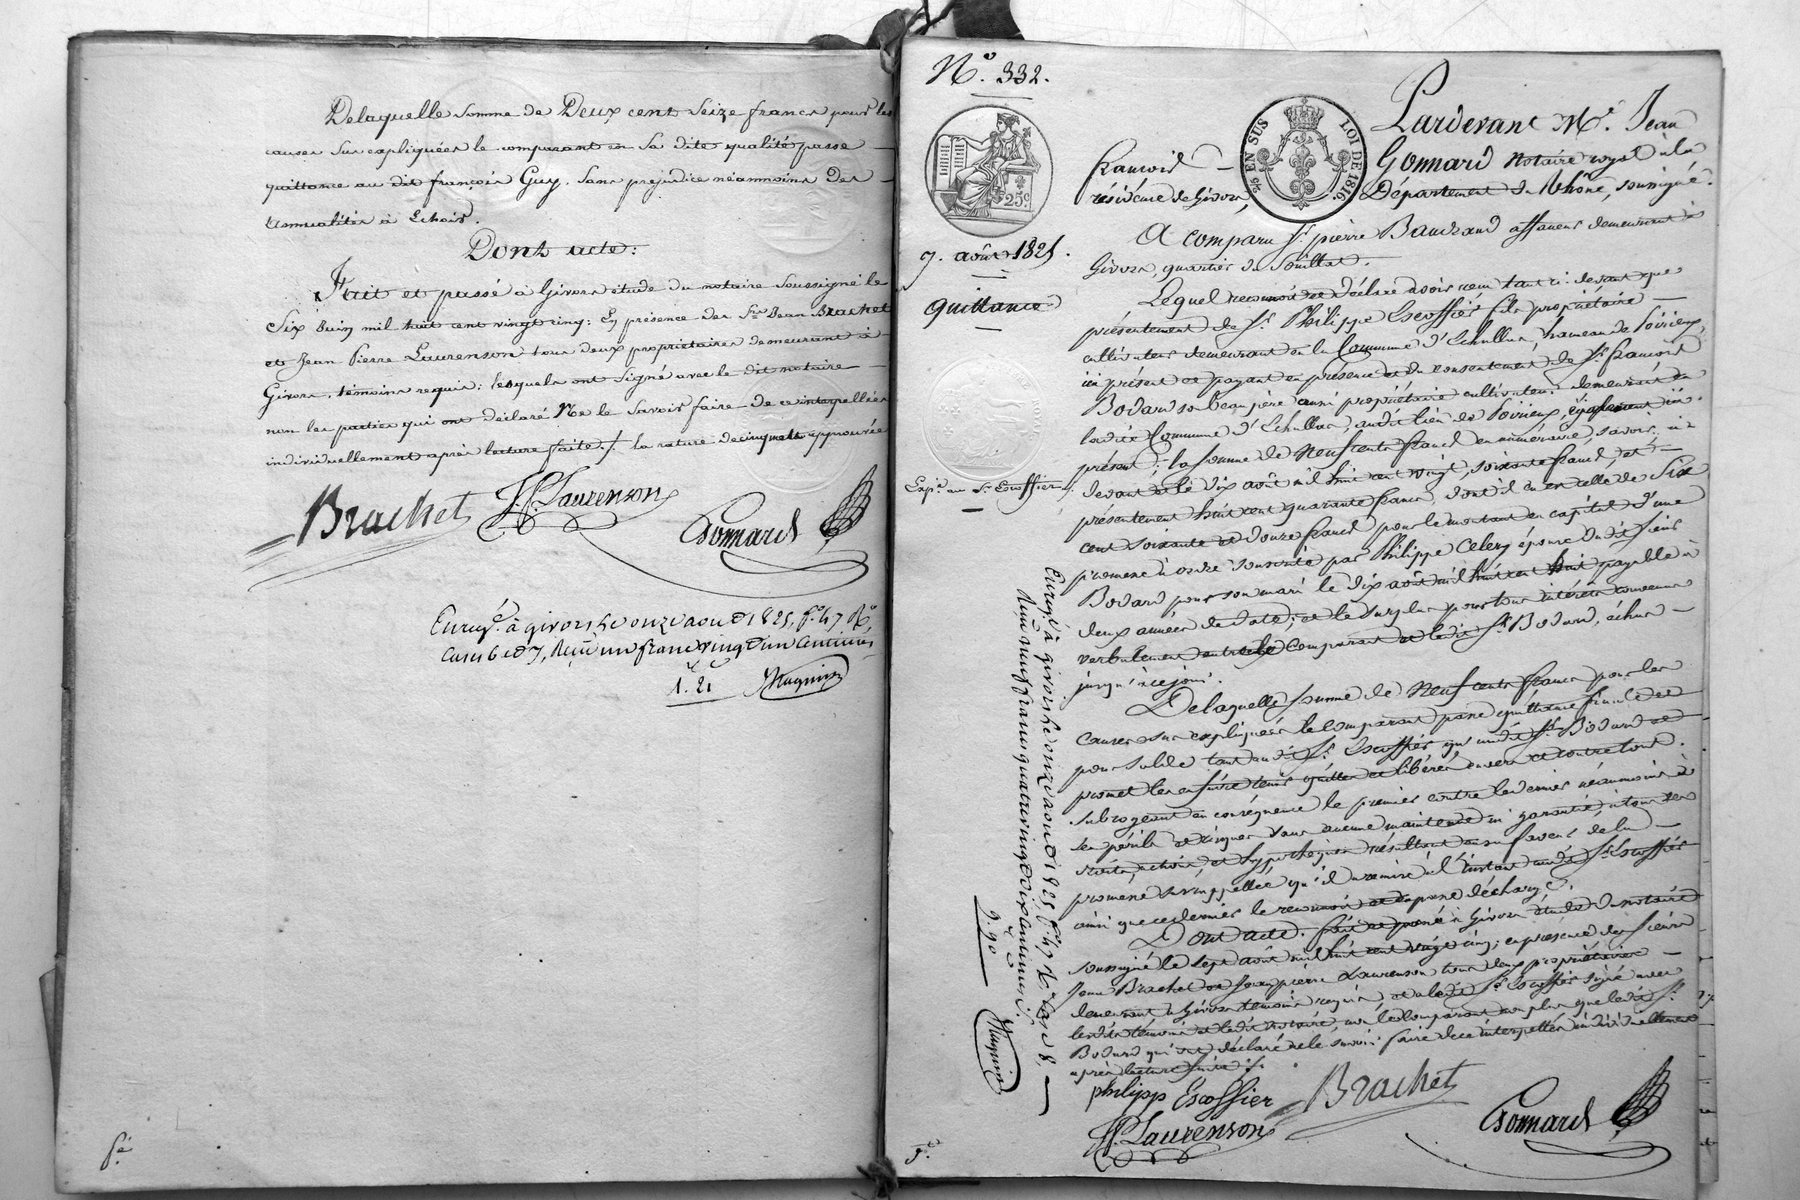 Delaquelle somme de Deux cent seize francs pour les
causes sus expliquées le comparant en sa dite qualité passe
quittance au dit françois Guy. sans préjudice néanmoins des
annualités à Echoir.
Dont acte:
Fait et passé à Givors étude du notaire soussigné le
Six Juin mil huit cent vingt cinq: En présence des Srs Jean Brachet
et Jean Pierre Laurenson tous deux propriétaires demeurant à
Givors, témoins requis: lesquels ont signé avec le dit notaire
non les parties qui ont déclaré Ne le savoir faire de ce interpellées
individuellement après lecture faite ./. la rature de cinq mots approuvée
Brachet JP. Laurenson
Gonnard
Enregé. à givors le onze aout 1825, fo. 47 Ro,
cases 6 et 7, Reçu un franc vingt un centimes
1. 21 Magnin
fé
No. 332.
EN SUS LOI DE 1816.
25c.
Pardevant Me. Jean
françois Gonnard Notaire royal à la
résidence de Givors, Département du Rhône, soussigné.
7. août 1825.
quittance
A comparu Sr. pierre Baudrand affaneur demeurant à
Givors, quartier du Souillat.
Lequel reconnoit et déclare avoir reçu tant ci-devant que
présentement de Sr. Philippe Escoffier fils propriétaire
cultivateur demeurant en la Commune d'Echallas, hameau de Poirieux,
ici présent et payant en présence et du consentement de Sr. françois
Bodard son beau père aussi propriétaire cultivateur demeurant en
ladite Commune d'Echallas, audit lieu de Poirieux, également ici
présent: la somme de Neuf cents francs en numéraire, savoir: ci
devant et le dix août mil huit cent vingt, soixante francs, et
Expé. au Sr. Escoffier
présentement huit cent quarante francs dont il en est celle de Six
cent soixante et douze francs pour le montant en capital d'une
promesse à ordre souscrite par Philippe Celery épouse dudit sieur
Bodard pour son mari le dix août mil huit cent huit payable à
deux années de date; et le surplus pour tous intérêts convenus
verbalement entre le Comparant et ledit Sr. Bodard, échus
jusqu'à ce jour.
Delaquelle somme de Neuf cents francs pour les
causes sus expliquées le comparant passe quittance finale et
pour solde tant audit Sr. Escoffier qu'audit Sr. Bodard et
promet les en faire tenir quittes et libérés envers et contre tous.
subrogeant en conséquence le premier contre le dernier néanmoins à
ses périls et risques sans aucune maintenue ni garantie, à tous ses
droits, actions, et hypothèques résultant en sa faveur de la
promesse sus rappellée qu'il a remise à l'instant audit Sr. Escoffier
ainsi que ce dernier le reconnoit et en passe décharge.
Dont acte. fait et passé à Givors étude du notaire
soussigné le sept août mil huit cent vingt cinq; en présence des sieurs
Jean Brachet et Jean pierre Laurenson tous deux propriétaires
demeurant à Givors témoins requis et a ledit Sr. Escoffier signé avec
lesdits témoins et ledit notaire, non le comparant non plus que ledit Sr.
Bodard qui ont déclaré ne le savoir faire de ce interpellés individuellement
après lecture faite ./.
philipp Escoffier Brachet
JP. Laurenson Gonnard
Enregé. à givors le onze aout 1825, fo. 47 Ro. case 8.
Reçu neuf francs quatre vingt dix centimes.
9. 90 Magnin